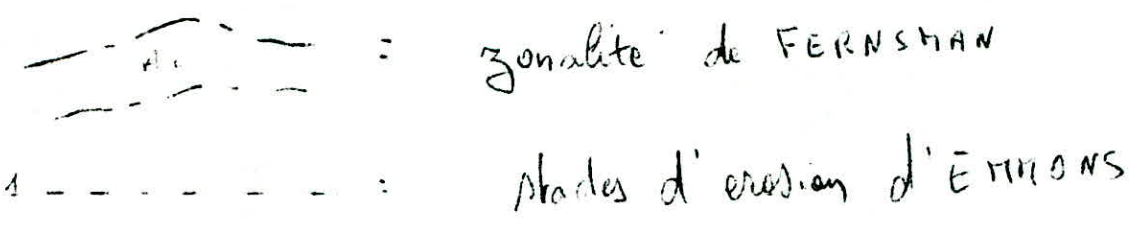 : zonalité de FERNSMAN
1 - - - - - - : stades d'erosion d'EMMONS